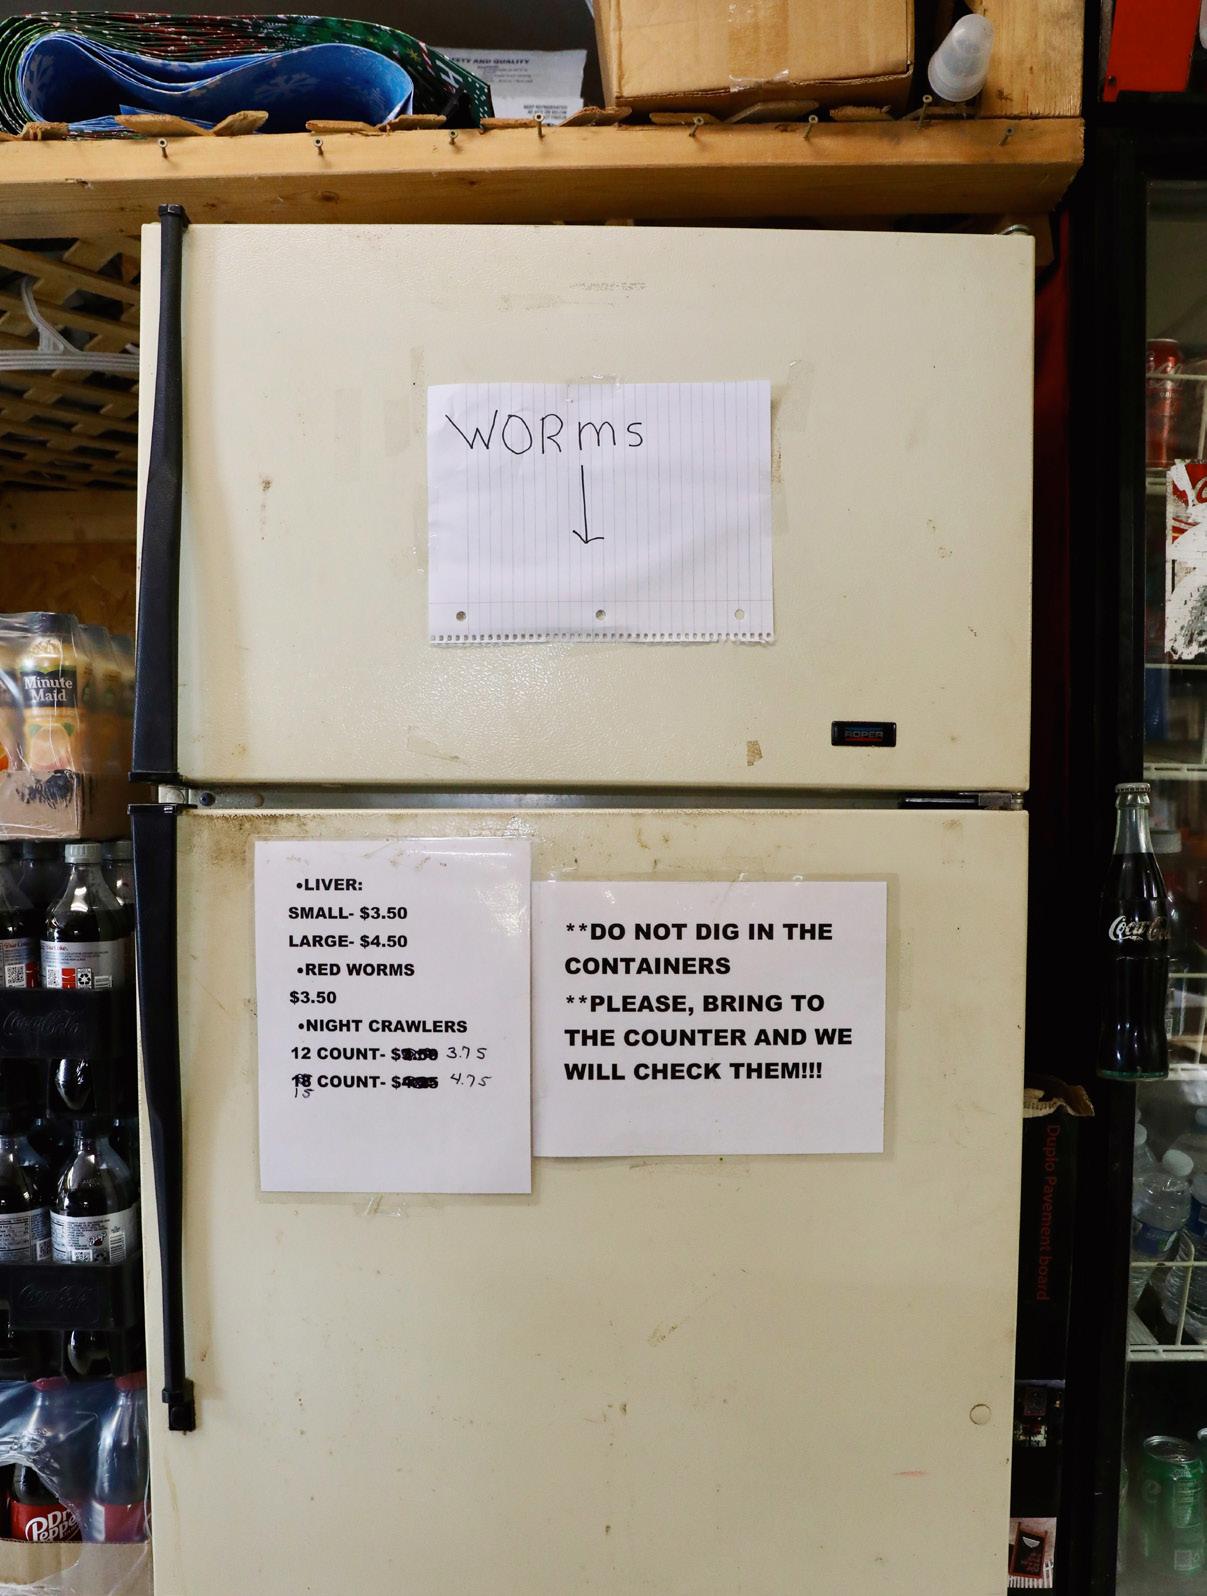 WORMS
ROPER
•LIVER:
SMALL- $3.50
LARGE- $4.50
•RED WORMS
$3.50
•NIGHT CRAWLERS
12 COUNT- $ 3.75
15 COUNT- $ 4.75
**DO NOT DIG IN THE
CONTAINERS
**PLEASE, BRING TO
THE COUNTER AND WE
WILL CHECK THEM!!!
Minute
Maid
Coca-Cola
Coca-Cola
Coca-Cola
Dr
Pepper
Duplo Pavement board